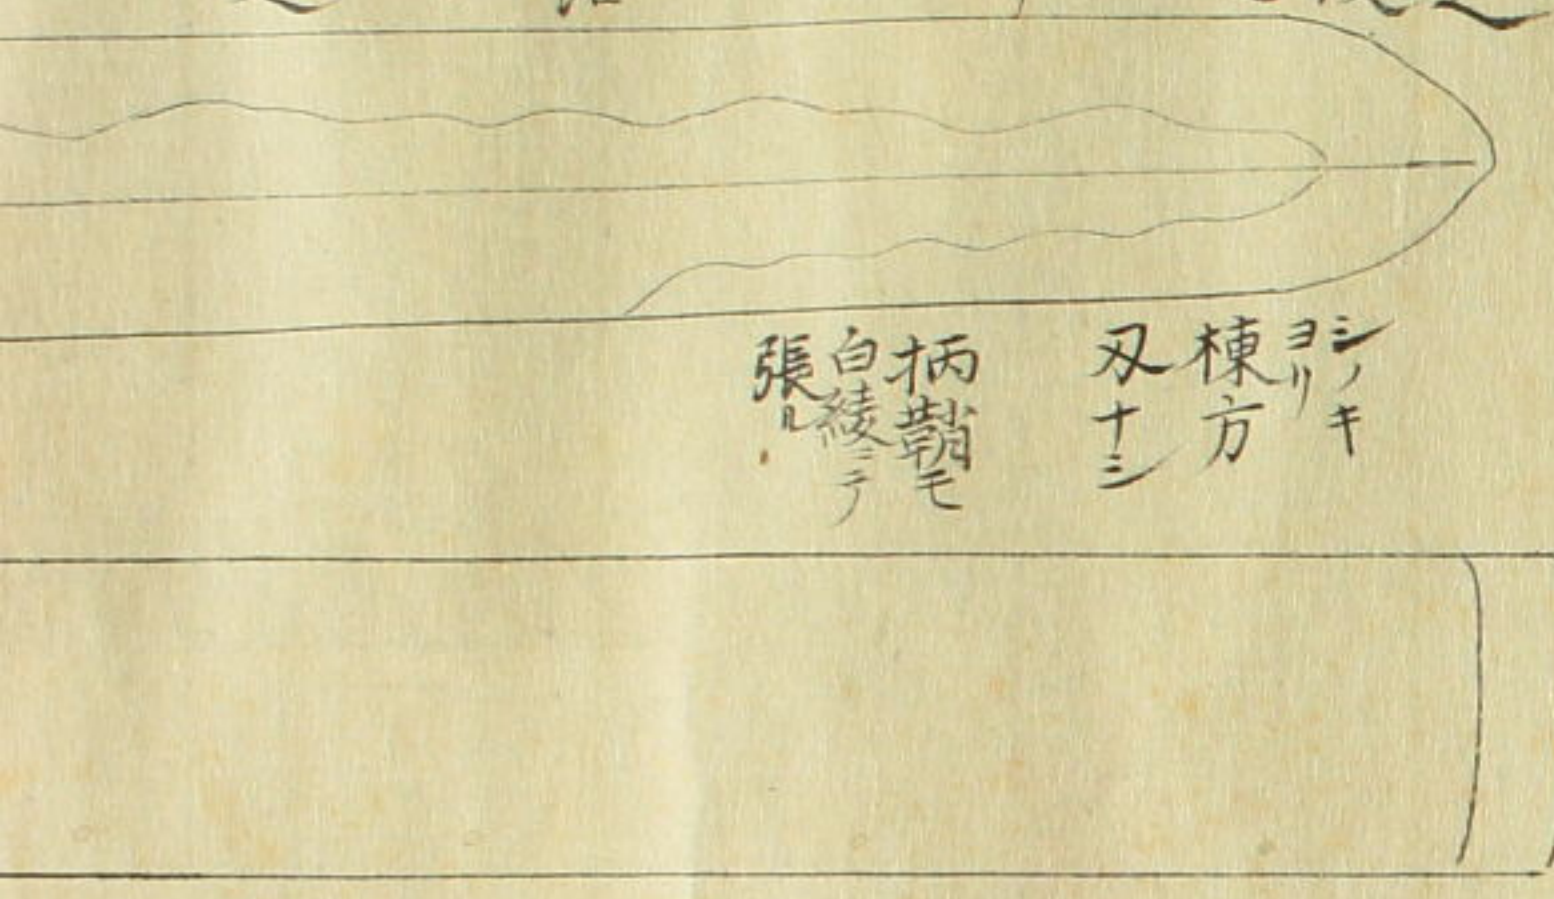 シノキ
ヨリ
棟方
刄ナシ
柄鞘モ
白綾ニテ
張ル